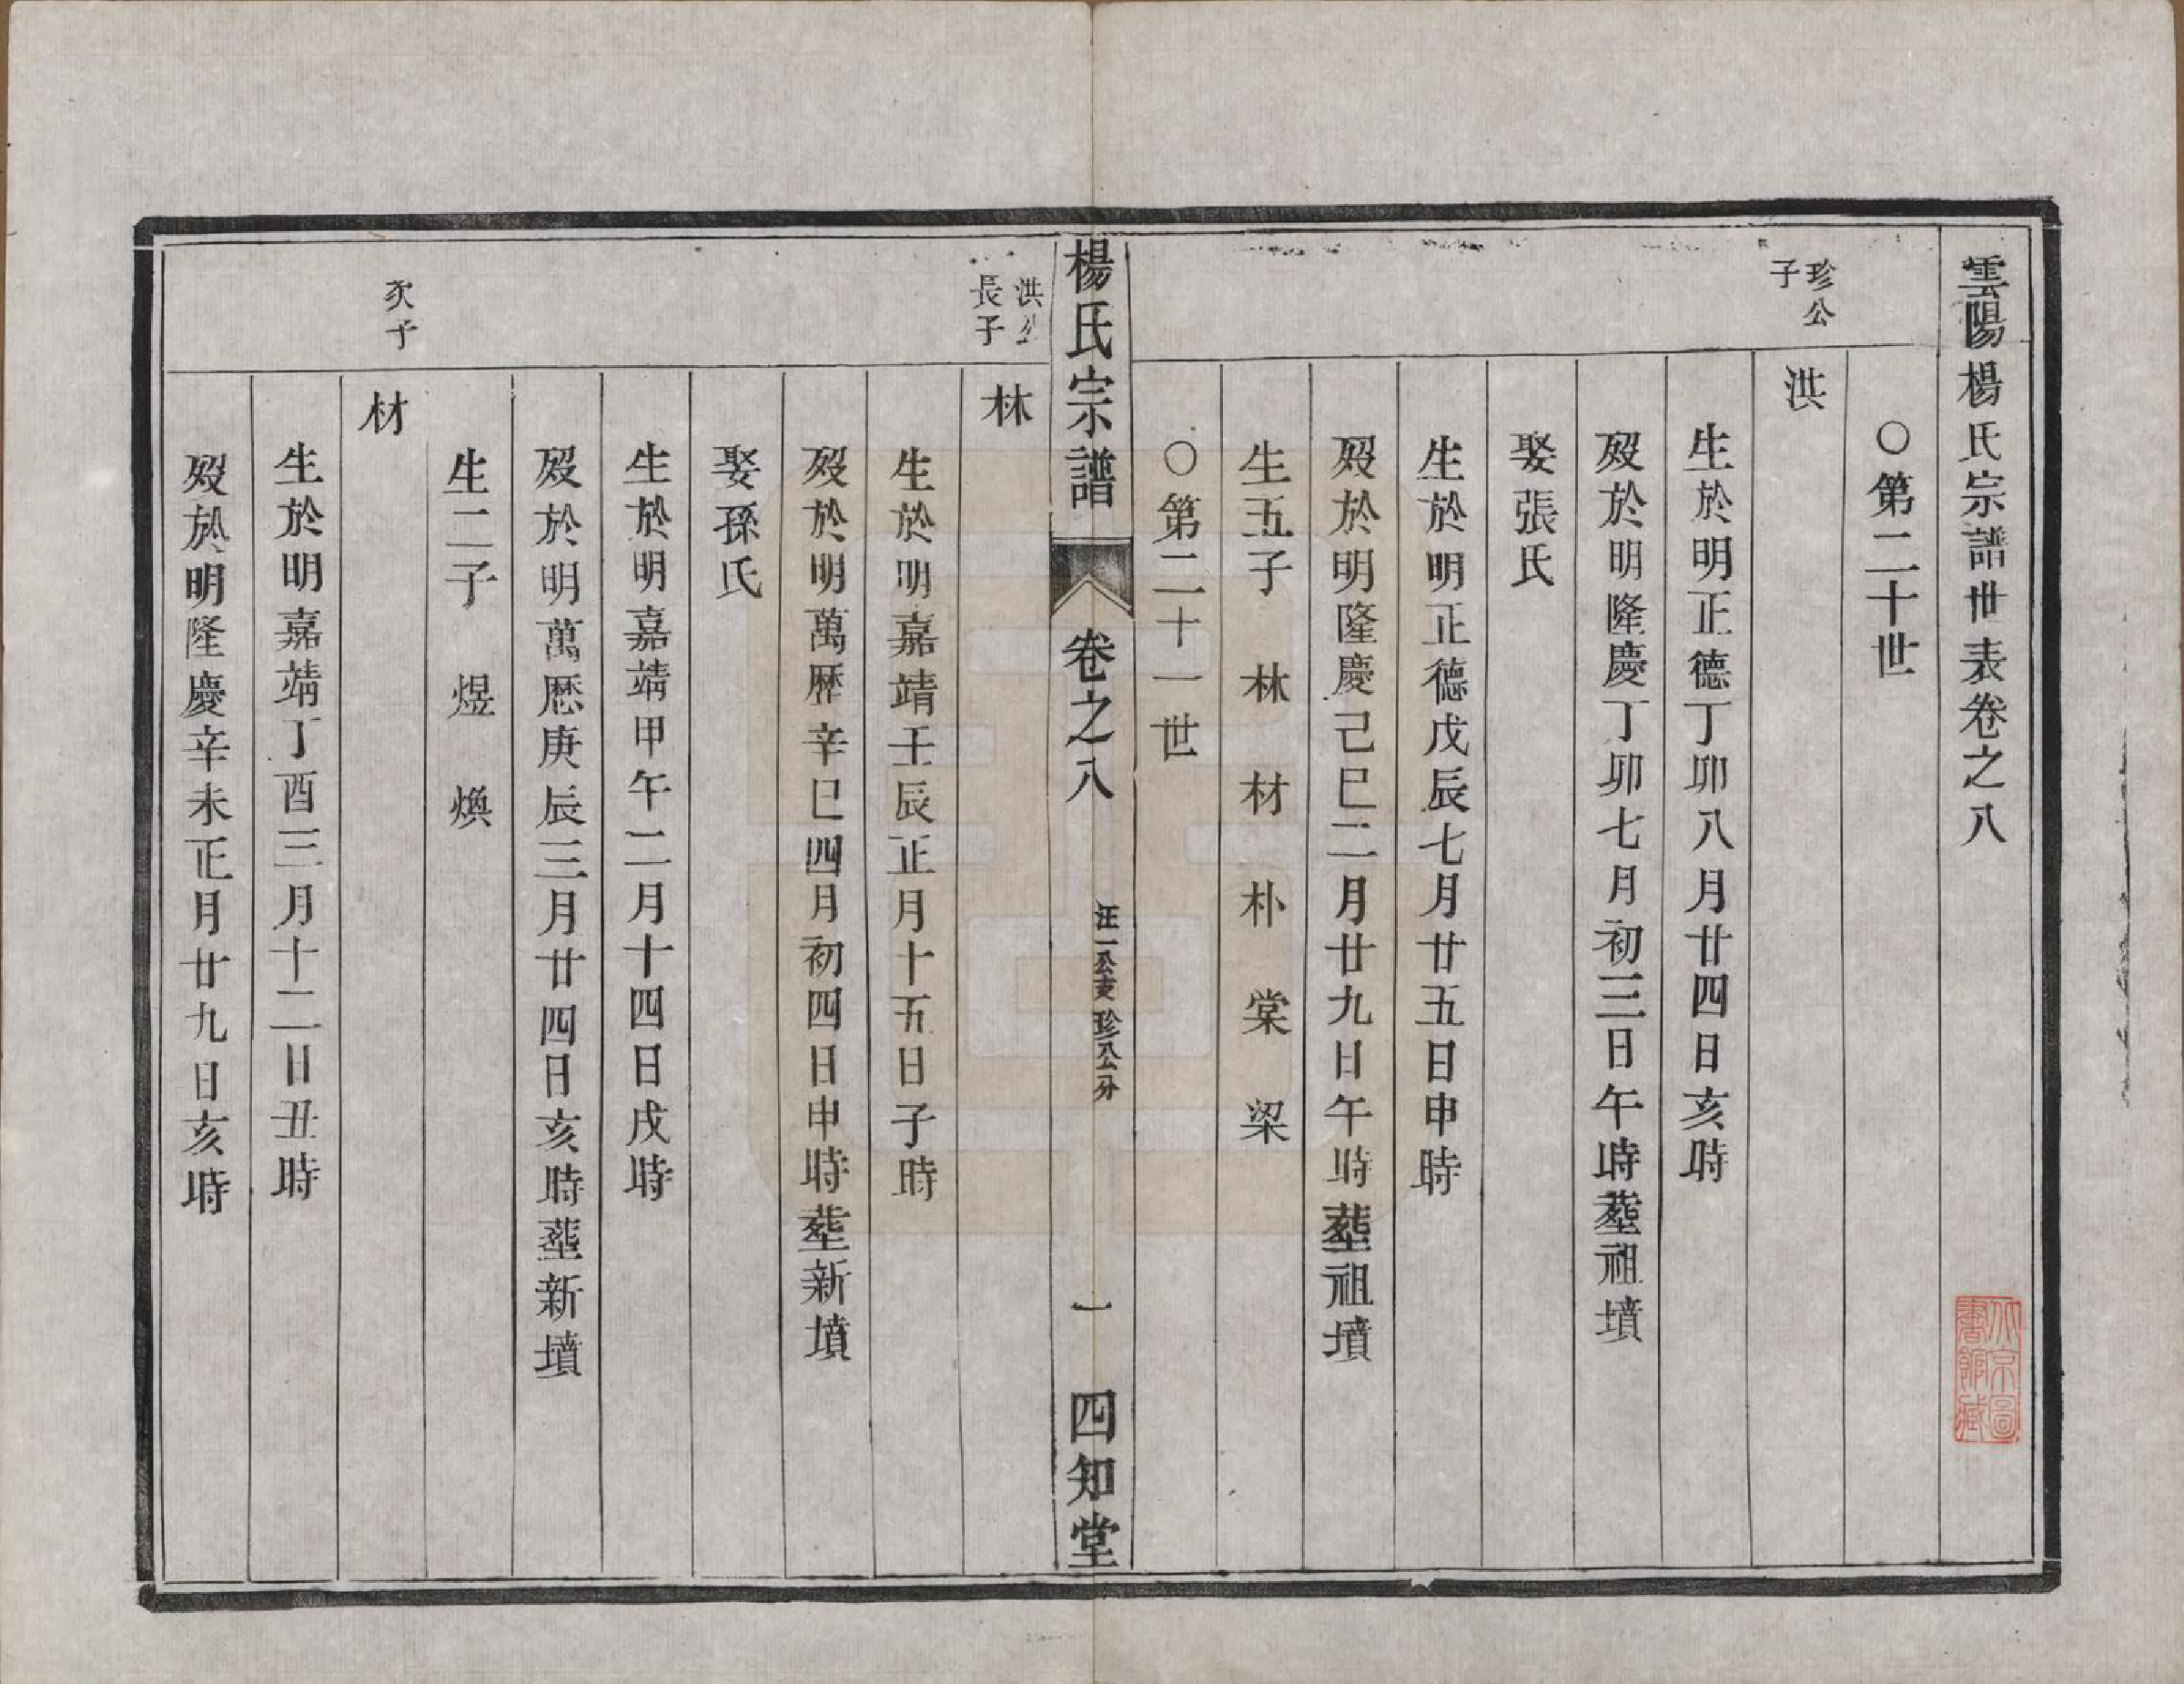 雲陽楊氏宗譜世表卷之八
○第二十世
珍公
子
洪
生於明正德丁卯八月廿四日亥時
歿於明隆慶丁卯七月初三日午時塟祖墳
娶張氏
生於明正德戊辰七月廿五日申時
歿於明隆慶己巳二月廿九日午時塟祖墳
生五子 林 材 朴 棠 梁
○第二十一世
楊氏宗譜 卷之八 汪一公支珍公分 一 四知堂
洪公
長子
林
生於明嘉靖壬辰正月十五日子時
歿於明萬歷辛巳四月初四日申時塟新墳
娶孫氏
生於明嘉靖甲午二月十四日戌時
歿於明萬歷庚辰三月廿四日亥時塟新墳
生二子 煜 煥
次子
材
生於明嘉靖丁酉三月十二日丑時
歿於明隆慶辛未正月廿九日亥時
北京圖
書館藏